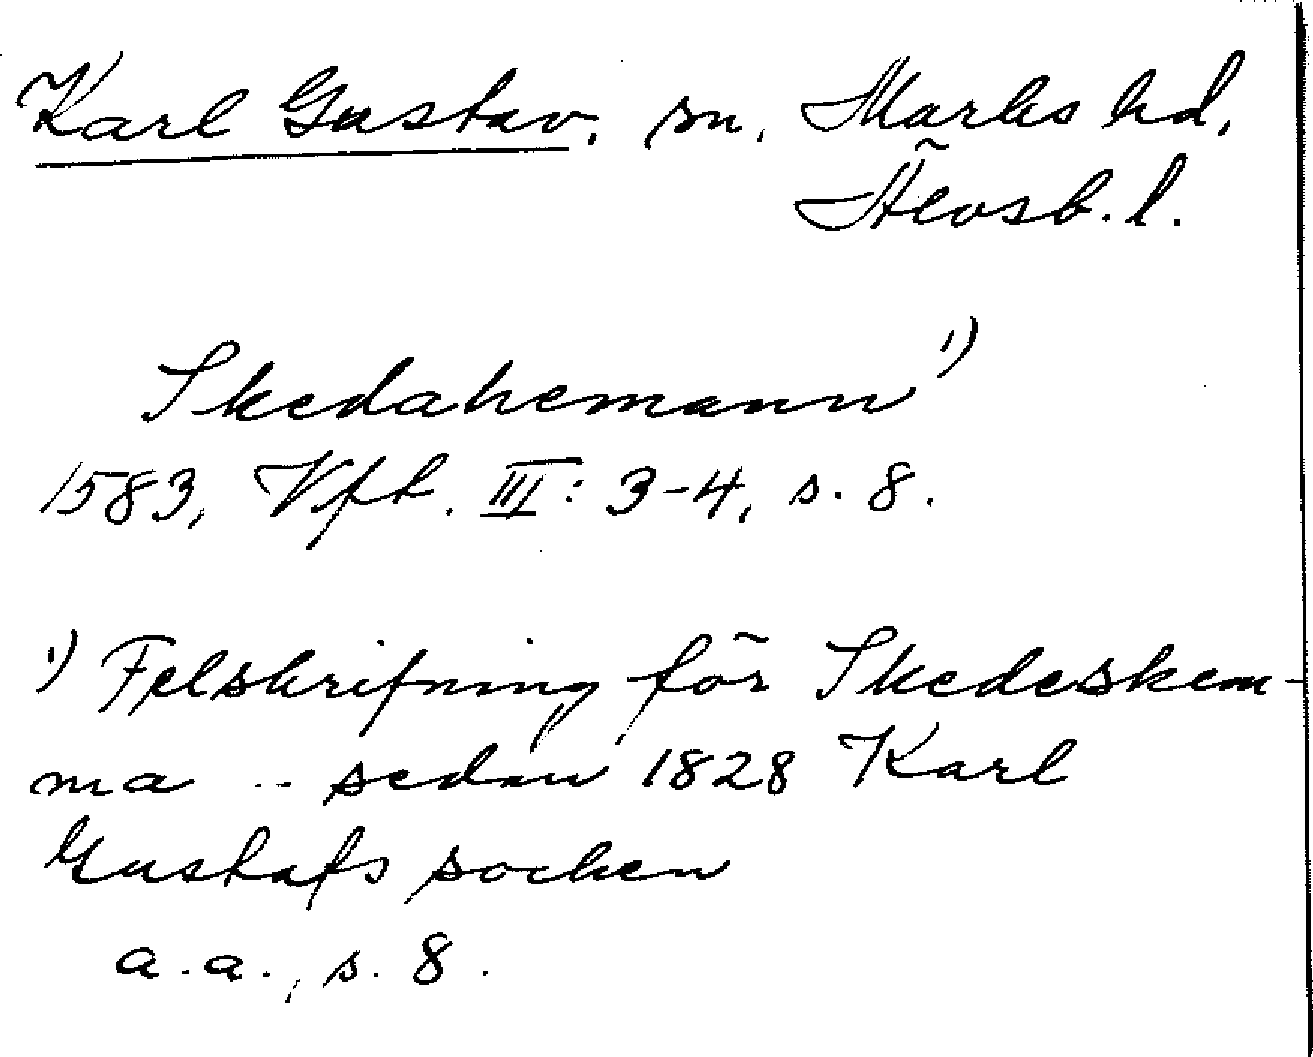 Karl Gustav, sn, Marks hd,
Älvsb. l.
Skedahemann 1)
1583, Vft. III: 3-4, s. 8.
1) Felskrifning för Skedeskem-
ma .. sedan 1828 Karl
Gustafs socken
a.a., s. 8.